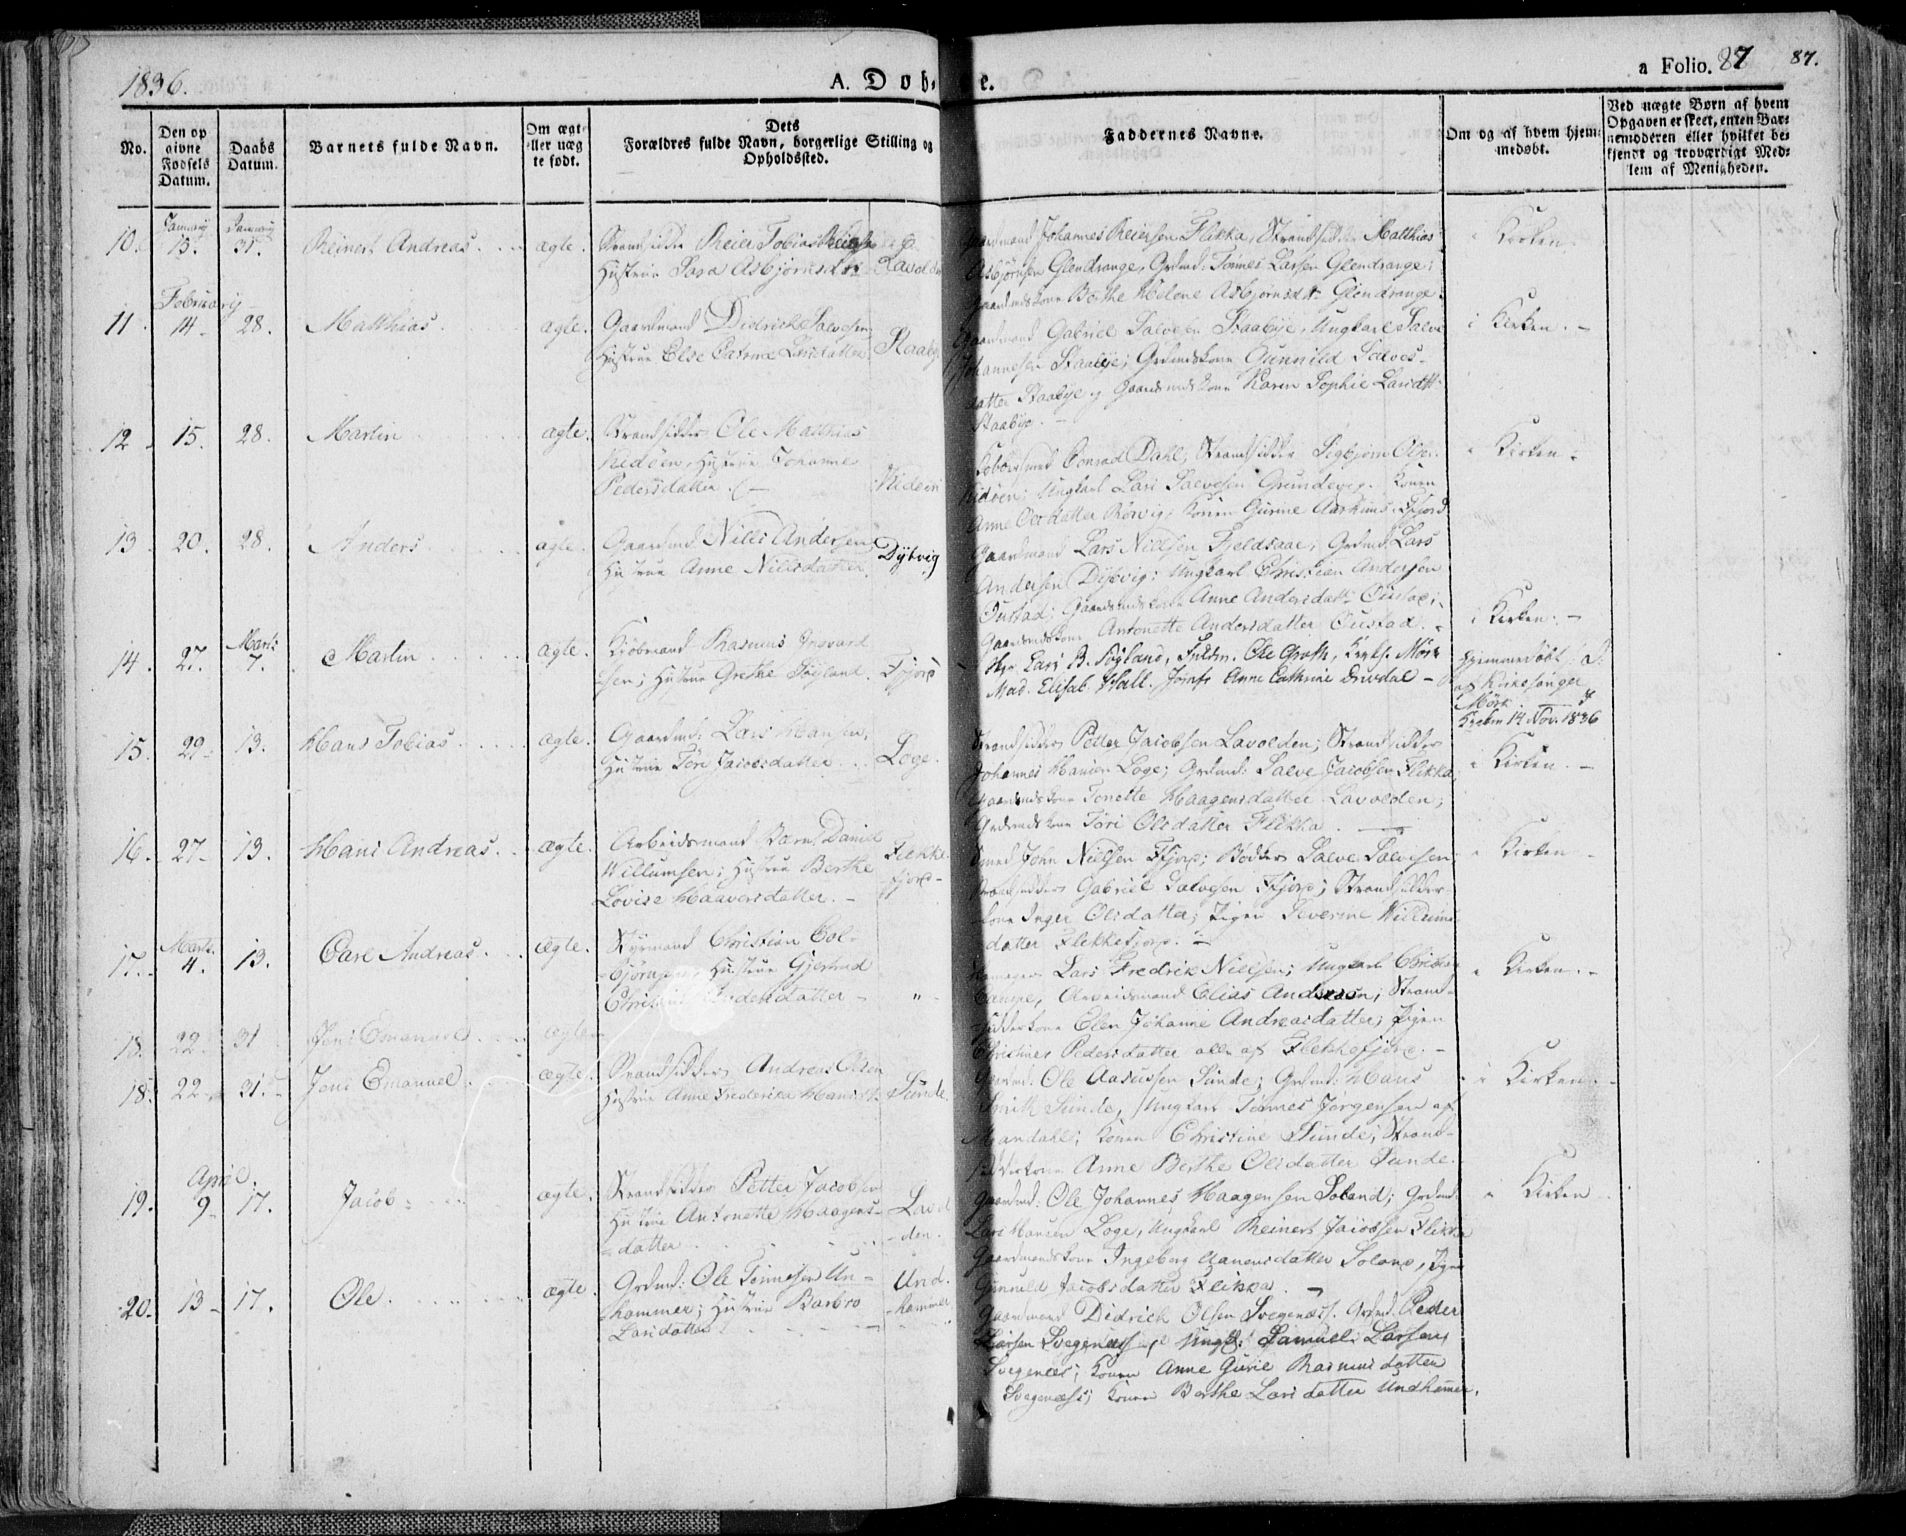 1836.
A. Döb-
e.
a Folio. 87
87.
No.
Den op
givne
Födsels
Datum.
Daabs
Datum.
Barnets fulde Navn.
Om ægt-
eller uæg
te födt.
Dets
Forældres fulde Navn, borgerlige Stilling og
Opholdssted.
Faddernes Navne.
Om og af hvem hjem-
medöbt.
Ved uægte Børn af hvem
Opgaven er skeet, enten Bar-
nemoderen eller hvilket be-
kjendt og troværdigt Med-
lem af Menigheden.
January
January
10. 13. 31. Reinert Andreas. ægte.
Strandsidder Reier Tobias
Hustrue Sara Asbjörnsdtr
Lavold
Gaardmand Johannes Reiersen Flikka, Strandsidder Matthias
Asbjörnsen Glendrange, Grdmd: Tönnes Larsen Glendrange;
Gaardmdskone Berthe Helene Asbjörnsdtr Glendrange.
i Kirken.
February
11. 14. 28. Matthias. ægte.
Gaardmand Didrich Salvesen
Hustrue Else Catrine Larsdatter
Staabye
Gaardmand Gabriel Salvesen Staabye, Ungkarl Salve
Johannesen Staabye; Grdmdskone Gunnild Salves-
datter Staabye og Gaardmdskone Karen Sophie Larsdtr
Staabye. -
i Kirken. -
12. 15. 28. Martin ægte.
Strandsidder Ole Mathias
Hidöen, Hustrue Johanne
Pedersdatter. -
Hideen
Conrad Dahl; Strandsidder Sigbjörn Olsen
Hidöen; Ungkarl Lars Salvesen Grundevig. Konen
Anne Olsdatter Rörvig; Konen Gurine Aarsens Ffjord.
i Kirken.
13. 20. 28. Anders ægte.
Gaardmd Niels Andersen
Hustrue Anne Nielsdatter
Dybvig
Gaardmand Lars Nielsen Fjeldsaae; Grdmd: Lars
Andersen Dybvig; Ungkarl Christian Andersen
Öustad; Gaardmdskone Anne Andersdatter Öustad;
Gaardmdskone Antonette Andersdatter Öustad. -
i Kirken. -
Marts
14. 27. 7. Martin ægte.
Kjöbmand Rasmus Ingvard
sen; Hustrue Grethe Föyland.
Ffjord
Hr Lars B. Föyland, Fuldm. Ole Groth, Kirks. Mörk
Mad. Elisab. Hall. Jomfr Anne Cathrine Drivdal -
Hjemmedöbt:
af Kirkesanger
Mörk
Kirken 14 Nov. 1836
15. 29. 13. Hans Tobias. ægte.
Gaardmd: Lars Hansen,
Hustrue Töri Jacobsdatter.
Loge.
Strandsidder Petter Jacobsen Lavolden; Strandsidder
Johannes Hansen Loge; Grdmd: Salve Jacobsen Flikka
Gaardmdskone Tonette Haagensdatter Lavolden;
Grdmdskone Töri Olsdatter Flikka.
i Kirken. -
16. 27. 13. Hans Andreas. ægte.
Arbeidsmand Daniel
Willumsen; Hustrue Berthe
Lovise Haaversdatter. -
Flekke-
fjord -
Smed John Nielsen Ffjord; Bödker Salve Salvesen
Strandsidder Gabriel Salvesen Ffjord; Strandsidder
kone Inger Olsdatter; Pigen Severine Willums
datter Flekkefjord. -
i Kirken -
Marts
17. 4. 13. Carl Andreas. ægte.
Styrmand Christian Col-
björnsen, Hustrue Gjertrud
Christine datter -
" -
Lars Fredrik Nielsen; Ungkarl Christian
Campe, Arbeidsmand Elias Andersen; Strand-
sidderkone Elen Johanne Andreasdatter; Pigen
Christine Pedersdatter alle af Flekkefjord. -
i Kirken. -
18. 22. 31 Jens Emanuel ægte
18. 22. 31. Jens Emanuel. ægte.
Strandsidder Andreas Olsen
Hustrue Anne Frederika Hansdtr.
Sunde.
Gaardmd: Ole Aasusen Sunde; Grdmd: Hans
Smith Sunde, Ungkarl Tönnes Jörgensen af
Mandahl; Konen Christine Sunde; Strand-
sidderkone Anne Berthe Olsdatter Sunde.
i Kirken.
April.
19. 9. 17. Jacob. ægte.
Strandsidder Petter Jacobsen
Hustrue Antonette Haagens-
datter
Lavol
den.
Gaardmd: Ole Johannes Haagensen Soland; Grdmd:
Lars Hansen Loge, Ungkarl Reinert Jacobsen Flikka
Gaardmandskone Ingeborg Aanensdatter Soland, Pigen
Gunnild Jacobsdatter Flikka. -
i Kirken
20. 13 - 17. Ole. ægte.
Grdmd: Ole Tönnesen Un-
hammer; Hustrue Barbro
Larsdatter
Und
hammer
Gaardmand Didrick Olsen Svegenæss. Grdmd: Peder
Larsen Svegenæss, Ungk: Samuel Larsen
Svegenæs; Konen Anne Gurie Rasmusdatter
Svegenæss; Konen Berthe Larsdatter Undhammer.